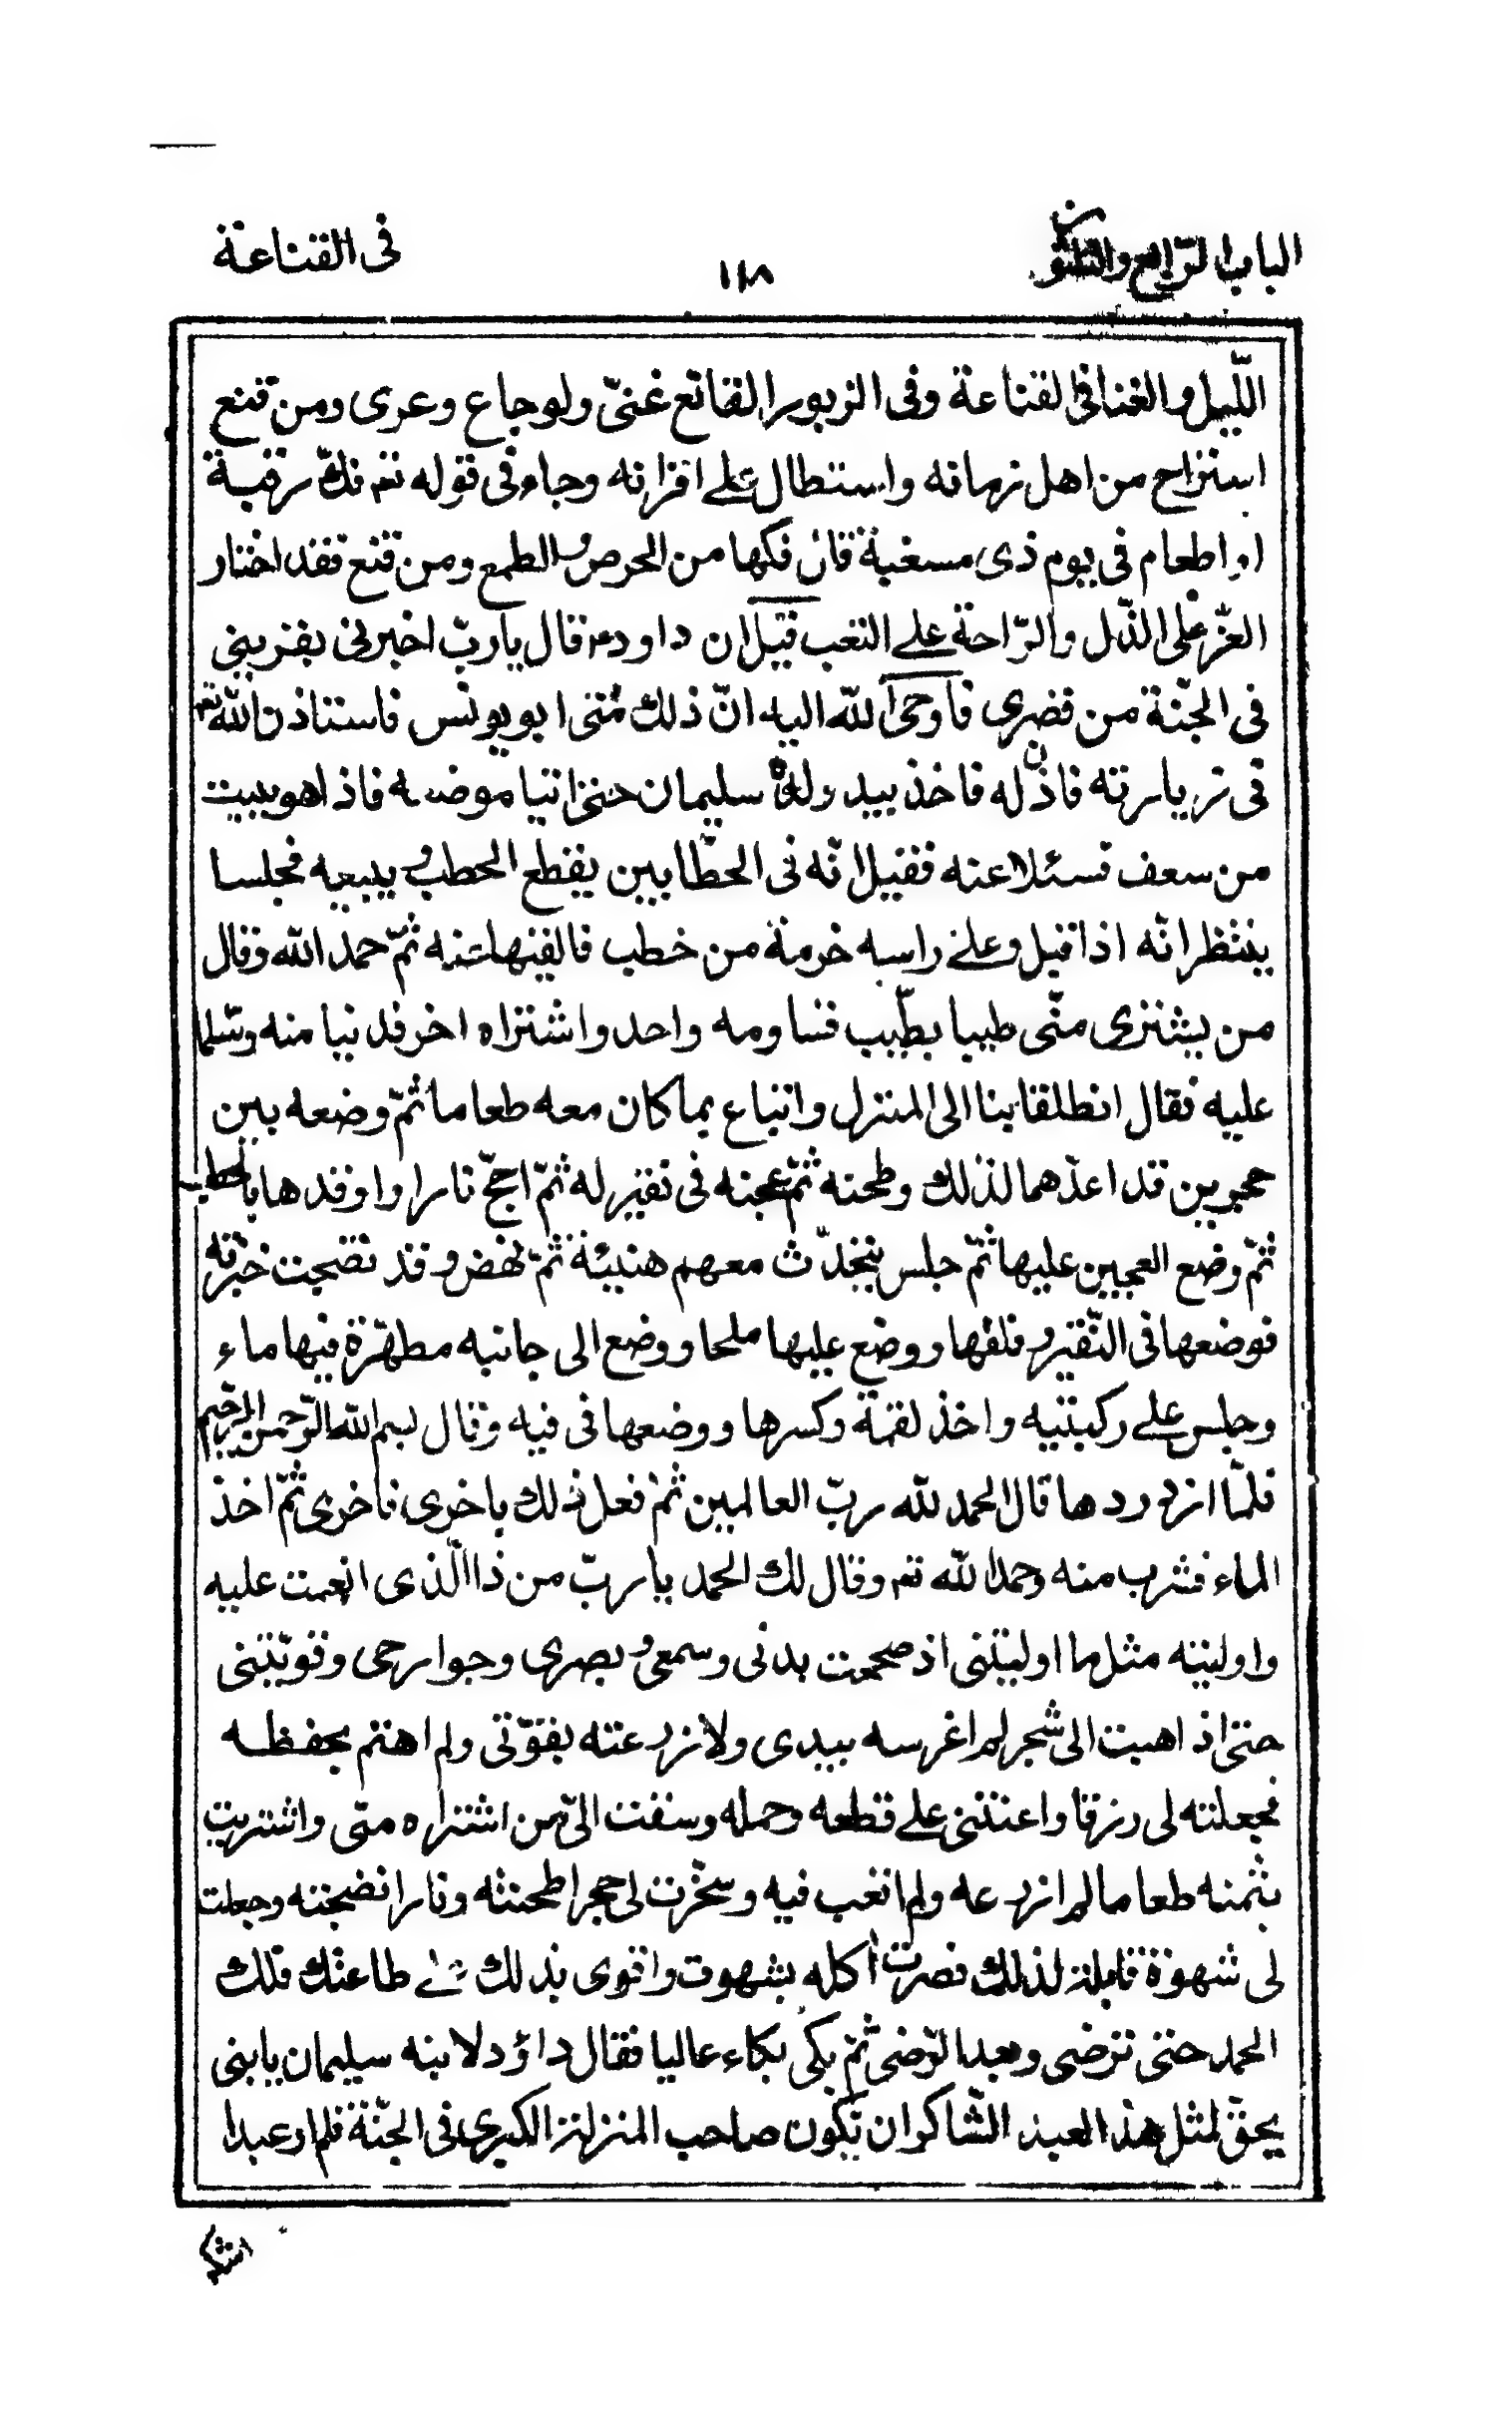 الباب الرّابع والثلثون
١١٨
فى القناعة
اللّيل والغنا فى القناعة وفى الزبور القانع غنىّ ولو جاع وعرى ومن قنع
استراح من اهل زمانه واستطال على اقرانه وجاء فى قوله تعـ فكّ رقبة
او اطعام فى يوم ذى مسغبة قال فكها من الحرص والطمع ومن قنع فقد اختار
العزّ على الذّل والرّاحة على التعب قيل ان داودء قال ياربّ اخبرنى بقرينى
فى الجنّة من قصرى فاوحى الله اليه انّ ذلك متى ابو يونس فاستاذن الله تعـ
فى زيارته فاذن له فاخذ بيد ولده سليمان حتى اتيا موضعه فاذا هو ببيت
من سعف فسئلا عنه فقيل انّه فى الحطّابين يقطع الحطب ويبيعه فجلسا
ينتظرانه اذ اقبل وعلى راسه حزمة من حطب فالقيها عنه ثمّ حمد الله وقال
من يشترى منّى طيبا بطيّب فساومه واحد واشتراه اخر فدنيا منه وسّلما
عليه فقال انطلقا بنا الى المنزل وابتاع بما كان معه طعاما ثمّ وضعه بين
حجرين قد اعدّهما لذلك وطحنه ثمّ عجنه فى نقير له ثمّ اجّج نارا واوقدها بالحطب
ثمّ وضع العجين عليها ثمّ جلس يتحدّث معهم هنيئة ثمّ نهض وقد نضجت خبزته
فوضعها فى النّقير وفلقها ووضع عليها ملحا ووضع الى جانبه مطهّرة فيها ماء
وجلس على ركبتيه واخذ لقمة وكسرها ووضعها فى فيه وقال بسم الله الرّحمن الرّحيم
فلمّا ازدردها قال الحمد لله ربّ العالمين ثمّ فعل ذلك باخرى فاخرى ثمّ اخذ
الماء فشرب منه وحمد الله تعـ وقال لك الحمد ياربّ من ذا الّذى انعمت عليه
واوليته مثل ما اوليتنى اذ صححت بدنى وسمعى وبصرى وجوارحى وقوّيتنى
حتى اذ اهبت الى شجر لم اغرسه بيدى ولا زرعته بقوّتى ولم اهتم بحفظه
فجعلته لى رزقا واعنتنى على قطعه وحمله وسقت الىّ من اشتراه منّى واشتريت
بثمنه طعاما لم ازرعه ولم اتعب فيه وسخّرت لى حجرا طحنته ونارا نضجته وجعلت
لى شهوة قابلة لذلك فصرت اكله بشهوة واقوى بذلك على طاعتك فلك
الحمد حتى ترضى وبعد الرّضى ثمّ بكى بكاء عاليا فقال داؤد لابنه سليمان يابنى
يحقّ لمثل هذا العبد الشّاكر ان يكون صاحب المنزلة الكبرى فى الجنّة فلم ار عبدا
اشكر